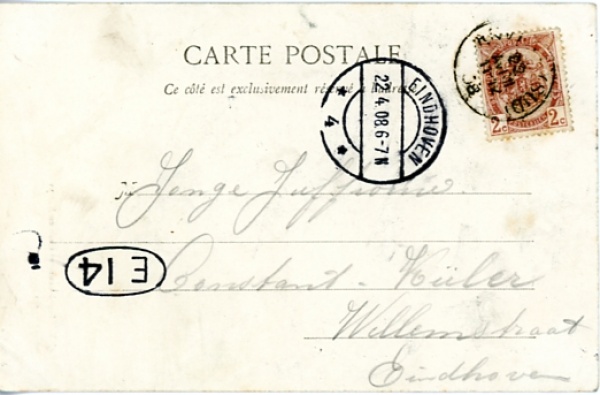 CARTE POSTALE
Ce côté est exclusivement réservé à l'adresse
EINDHOVEN
22.4.08.6-7N
* 4 *
2c 2c
M
Jonge Juffrouw.
E 14
Constant-
Willemstraat
Eindhoven